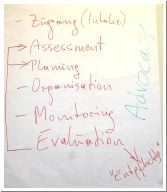 - Zugang (Intake)
Assessment
Planung
- Organisation
- Monitoring
Evaluation
Advocacy